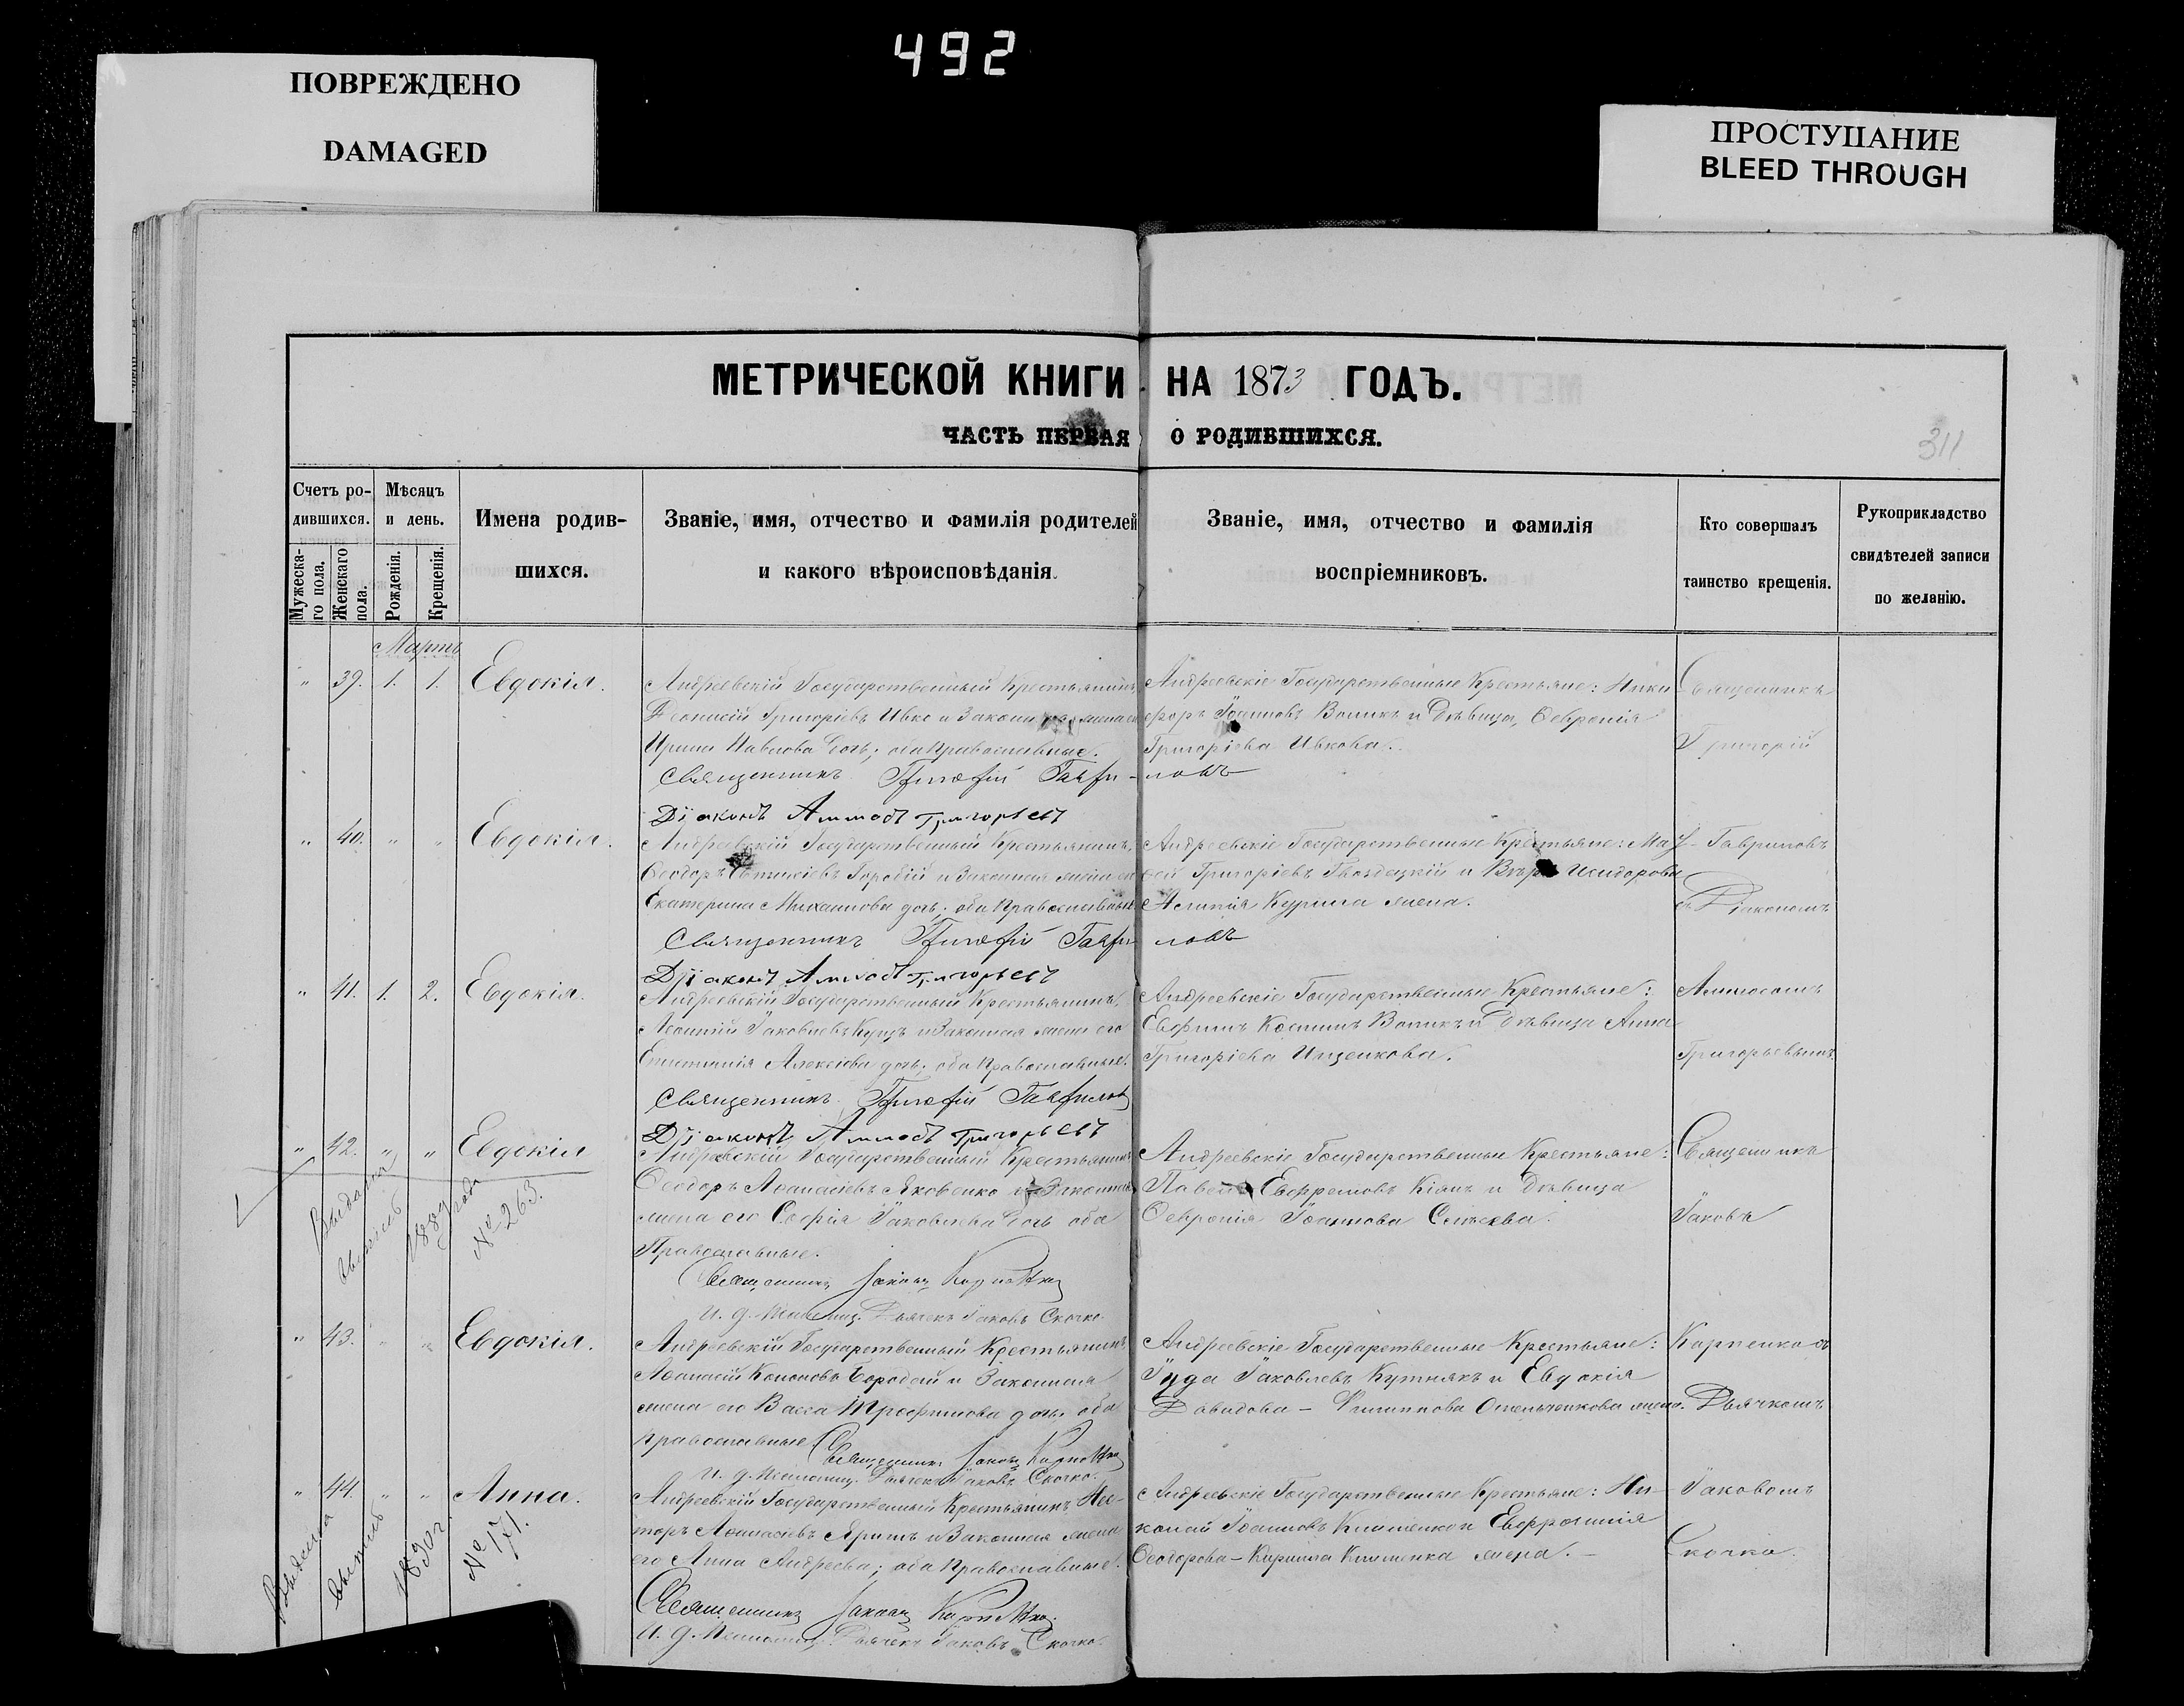 492
ПОВРЕЖДЕНО
DAMAGED
ПРОСТУПАНИЕ
BLEED THROUGH
МЕТРИЧЕСКОЙ КНИГИ НА 1873 ГОДЪ.
ЧАСТЬ ПЕРВАЯ О РОДИВШИХСЯ.
311
Счетъ ро-
дившихся.
Мужеска-
го пола.
Женскаго
пола.
Мѣсяцъ
и день.
Рожденія.
Крещенія.
Имена родив-
шихся.
Званіе, имя, отчество и фамилія родителей
и какого вѣроисповѣданія.
Званіе, имя, отчество и фамилія
воспріемниковъ.
Кто совершалъ
таинство крещенія.
Рукоприкладство
свидѣтелей записи
по желанію.
Мартъ
" 39. 1. 1. Евдокія.
Андреевскій Государственный Крестьянинъ
Григоріевъ Ивко и Законная жена его
Ирина Павлова дочь; оба Православные.
Священникъ Григорій Гаври-
ловъ
Діаконъ Аммосъ Григорьевъ
Андреевскіе Государственные Крестьяне: Ники-
форъ Іоанновъ Воликъ и Дѣвица Февронія
Григоріева Ивкова.
Священникъ
Григорій
" 40. " " Евдокія.
Андреевскій Государственный Крестьянинъ,
Ѳеодоръ Горобій и Законная жена его
Екатерина Михаилова дочь; оба Православные
Священникъ Григорій Гаври-
ловъ
Діаконъ Аммосъ Григорьевъ
Андреевскіе Государственные Крестьяне:
Григоріевъ Гвоздецкій и Вѣра Исидорова
Курила жена.
Гавриловъ
съ Діакономъ
" 41. 1. 2. Евдокія.
Андреевскій Государственный Крестьянинъ,
Леонтій Іаковлевъ Куцъ и Законная жена его
Епистимія Алексіева дочь; оба Православные.
Священникъ Григорій Гавриловъ
Діаконъ Аммосъ Григорьевъ
Андреевскіе Государственные Крестьяне:
Евфимъ Косминъ Воликъ и Дѣвица Анна
Григоріева Ищенкова.
Аммосомъ
Григорьевымъ.
" 42. " " Евдокія
Выдано
1887 года
№ 263.
Андреевскій Государственный Крестьянинъ
Ѳеодоръ Аѳанасіевъ Яковенко и Законная
жена его Софія Іаковлева дочь оба
Православные.
Священникъ Іаковъ Карпенко
И. д. Псаломщ. Дьячекъ Іаковъ Скочко.
Андреевскіе Государственные Крестьяне:
Павелъ Ефремовъ Кіянъ и Дѣвица
Февронія Іоаннова
Священникъ
Іаковъ
" 43. " " Евдокія.
Андреевскій Государственный Крестьянинъ
Аѳанасій Кононовъ Бородай и Законная
жена его Васса Трофимова дочь, оба
православные
Священникъ Іаковъ Карпенко
И. д. Псаломщ. Дьячекъ Іаковъ Скочко.
Андреевскіе Государственные Крестьяне:
Іуда Іаковлевъ Кутнякъ и Евдокія
Давидова – Филиппова Омельченкова жена.
Карпенко съ
Дьячкомъ
" 44. " " Анна.
1890 г.
№ 171.
Андреевскій Государственный Крестьянинъ Нес-
торъ Аѳанасіевъ Яримъ и Законная жена
его Анна Андреева; оба Православные.
Священникъ Іаковъ Карпенко.
И. д. Псаломщ. Дьячекъ Іаковъ Скочко.
Андреевскіе Государственные Крестьяне: Ни-
колай Іоанновъ Клименко и Евфросинія
Ѳеодорова – Кирилла Клименка жена.
Іаковомъ
Скочко.